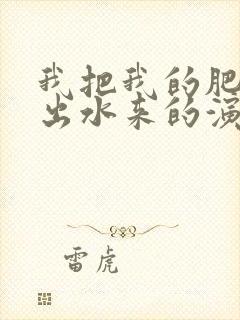 我把我的肥
出水来的演
雷虎